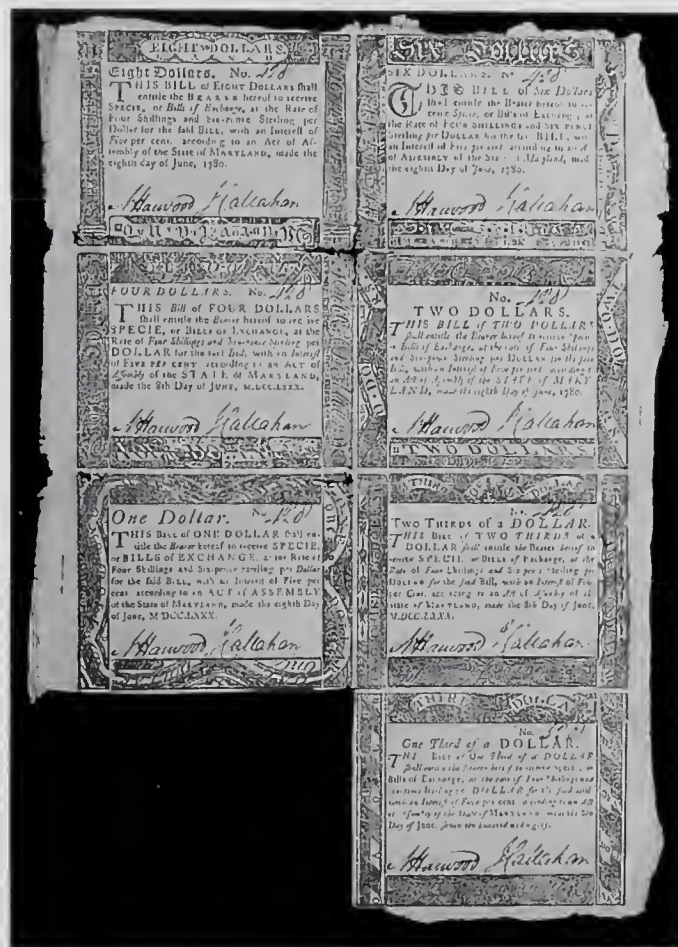 EIGHT DOLLARS.
Eight Dollars. No. 428
THIS BILL of EIGHT DOLLARS shall
entitle the BEARER hereof to receive
SPECIE, or Bills of Exchange, at the Rate of
Four Shillings and Six-pence Sterling per
Dollar for the said BILL, with an Interest of
Five per cent. according to an Act of As-
sembly of the State of MARYLAND, made the
eighth day of June, 1780.
NHarwood JCallahan
Six Dollars
SIX DOLLARS. No. 428
THIS BILL of Six Dollars
shall entitle the Bearer hereof to re-
ceive Specie, or Bills of Exchange, at
the Rate of FOUR SHILLINGS and SIX PENCE
Sterling per DOLLAR for the said BILL, with
an Interest of Five per cent. according to an Act
of ASSEMBLY of the State of Maryland, made
the eighth Day of June, 1780.
NHarwood JCallahan
FOUR DOLLARS. No. 428
THIS Bill of FOUR DOLLARS
shall entitle the Bearer hereof to receive
SPECIE, or BILLS OF EXCHANGE, at the
Rate of Four Shillings and Six-pence Sterling per
DOLLAR for the said Bill, with an Interest
of FIVE PER CENT according to an ACT of
Assembly of the STATE of MARYLAND,
made the 8th Day of JUNE, M.DCC.LXXX.
NHarwood JCallahan
No. 428
TWO DOLLARS.
THIS BILL of TWO DOLLARS
shall entitle the Bearer hereof to receive
or Bills of Exchange, at the rate of Four Shillings
and Six-pence Sterling per DOLLAR for the said
Bill, with an Interest of Five per cent. according to
an Act of Assembly of the STATE of MARY
LAND, made the eighth Day of June, 1780.
NHarwood JCallahan
TWO DOLLARS
One Dollar. No. 428
THIS BILL of ONE DOLLAR shall en-
title the Bearer hereof to receive SPECIE,
or BILLS of EXCHANGE, at the Rate of
Four Shillings and Six-pence sterling per Dollar
for the said BILL, with an Interest of Five per
cent according to an ACT of ASSEMBLY
of the State of MARYLAND, made the eighth Day
of June, M DCC.LXXX.
NHarwood JCallahan
No. 428
TWO THIRDS of a DOLLAR.
THIS BILL of TWO THIRDS of a
DOLLAR shall entitle the Bearer hereof to
receive SPECIE, or BILLS of Exchange, at the
Rate of Four Shillings and Six pence sterling per
DOLLAR for the said Bill, with an Interest of Five
per Cent, according to an Act of Assembly of the
state of MARYLAND, made the 8th Day of June,
M.DCC.LXXX.
NHarwood JCallahan
THIRD DOLLAR
No.
One Third of a DOLLAR.
THIS BILL of One Third of a DOLLAR
shall entitle the Bearer hereof to receive Specie, or
Bills of Exchange, at the rate of Four Shillings and
Six-pence Sterling per DOLLAR for the said Bill
with an Interest of Five per cent according to an Act
of Assembly of the State of MARYLAND made the 8th
Day of June,
NHarwood JCallahan